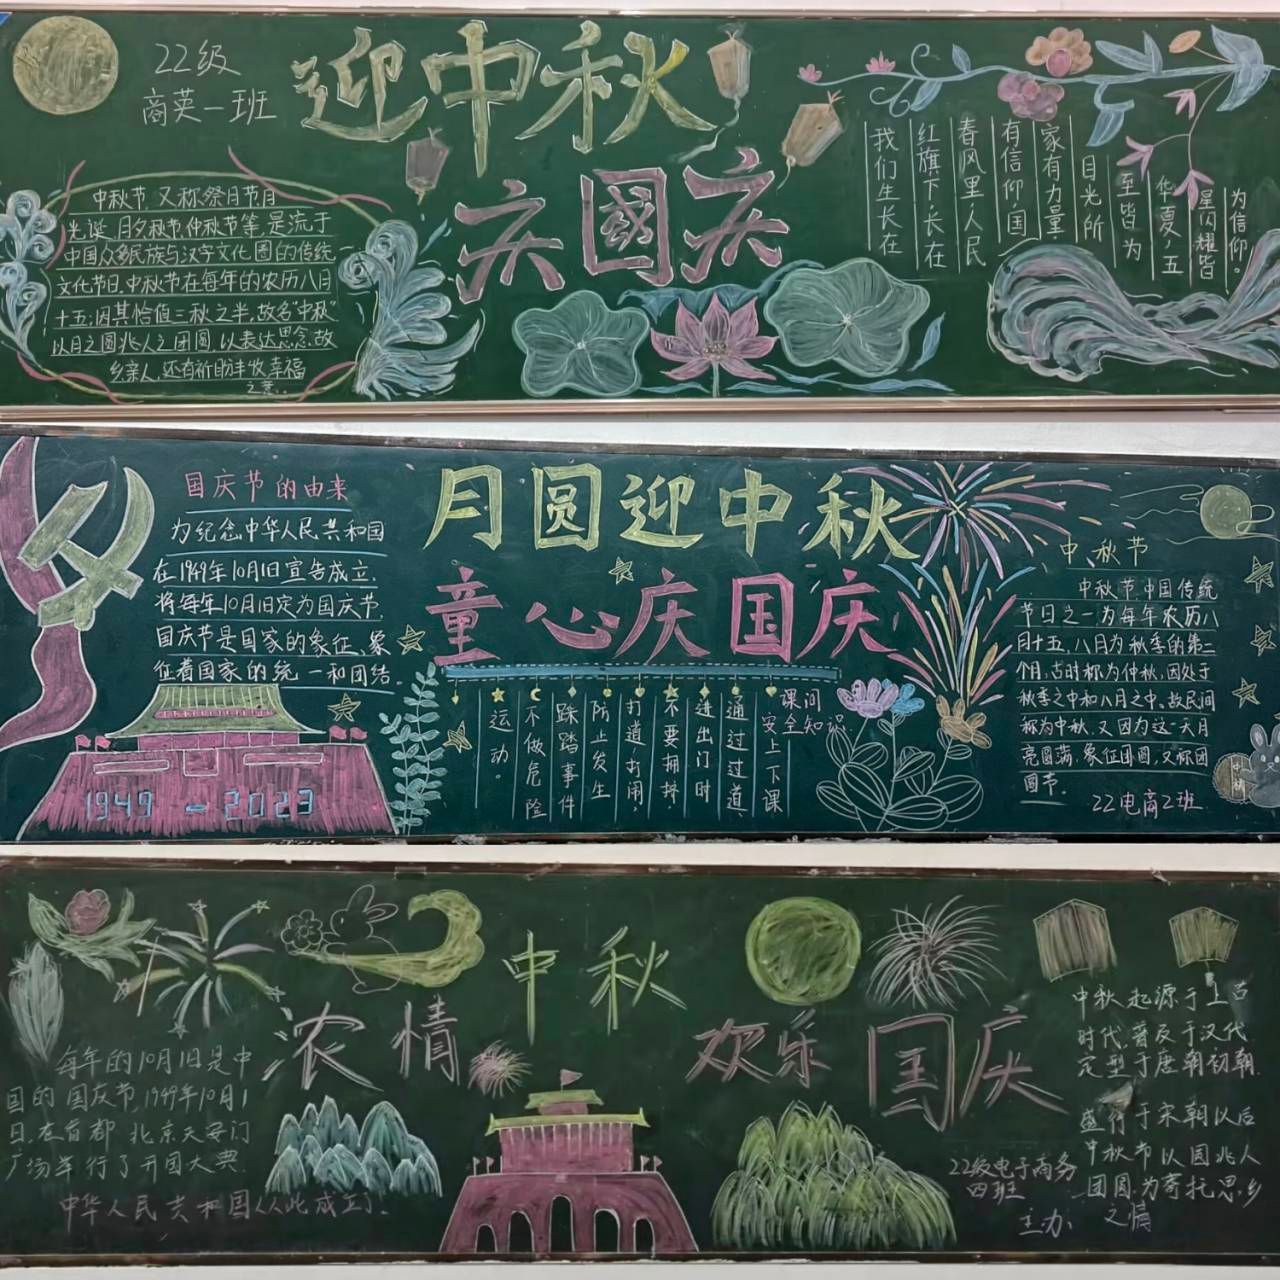 22级
商英一班
迎中秋
庆國庆
中秋节,又称祭月节月
光诞、月夕秋节仲秋节等,是流于
中国众多民族与汉字文化圈的传统
文化节日,中秋节在每年的农历八月
十五;因其恰值三秋之半,故名"中秋"
以月之圆兆人之团圆,以表达思念故
乡亲人,还有祈盼丰收幸福
之意。
我们生长在
红旗下,长在
春风里,人民
有信仰,国
家有力量,
目光所
至皆为
华夏,五
星闪耀皆
为信仰。
国庆节的由来
为纪念中华人民共和国
在1949年10月1日宣告成立,
将每年10月1日定为国庆节,
国庆节是国家的象征、象
征着国家的统一和团结。
1949-2023
月圆迎中秋
童心庆国庆
课间
安全知识
安上下课
通过过道
进出门时
不要拥挤
打逍打闹,
防止发生
踩踏事件
不做危险
运动。
中秋节
中秋节,中国传统
节日之一,为每年农历八
月十五,八月为秋季的第二
个月,古时称为仲秋,因处于
秋季之中和八月之中,故民间
称为中秋,又因为这一天月
亮圆满,象征团圆,又称团
圆节。
22电商2班
中秋
浓情
欢乐国庆
每年的10月1日是中
国的国庆节,1949年10月1
日,在首都北京天安门
广场举行了开国大典,
中华人民共和国从此成立了.
中秋起源于上古
时代,普及于汉代
定型于唐朝初朝
盛行于宋朝以后
中秋节以圆兆人
团圆,为寄托思乡
之情
22级电子商务
四班
主办